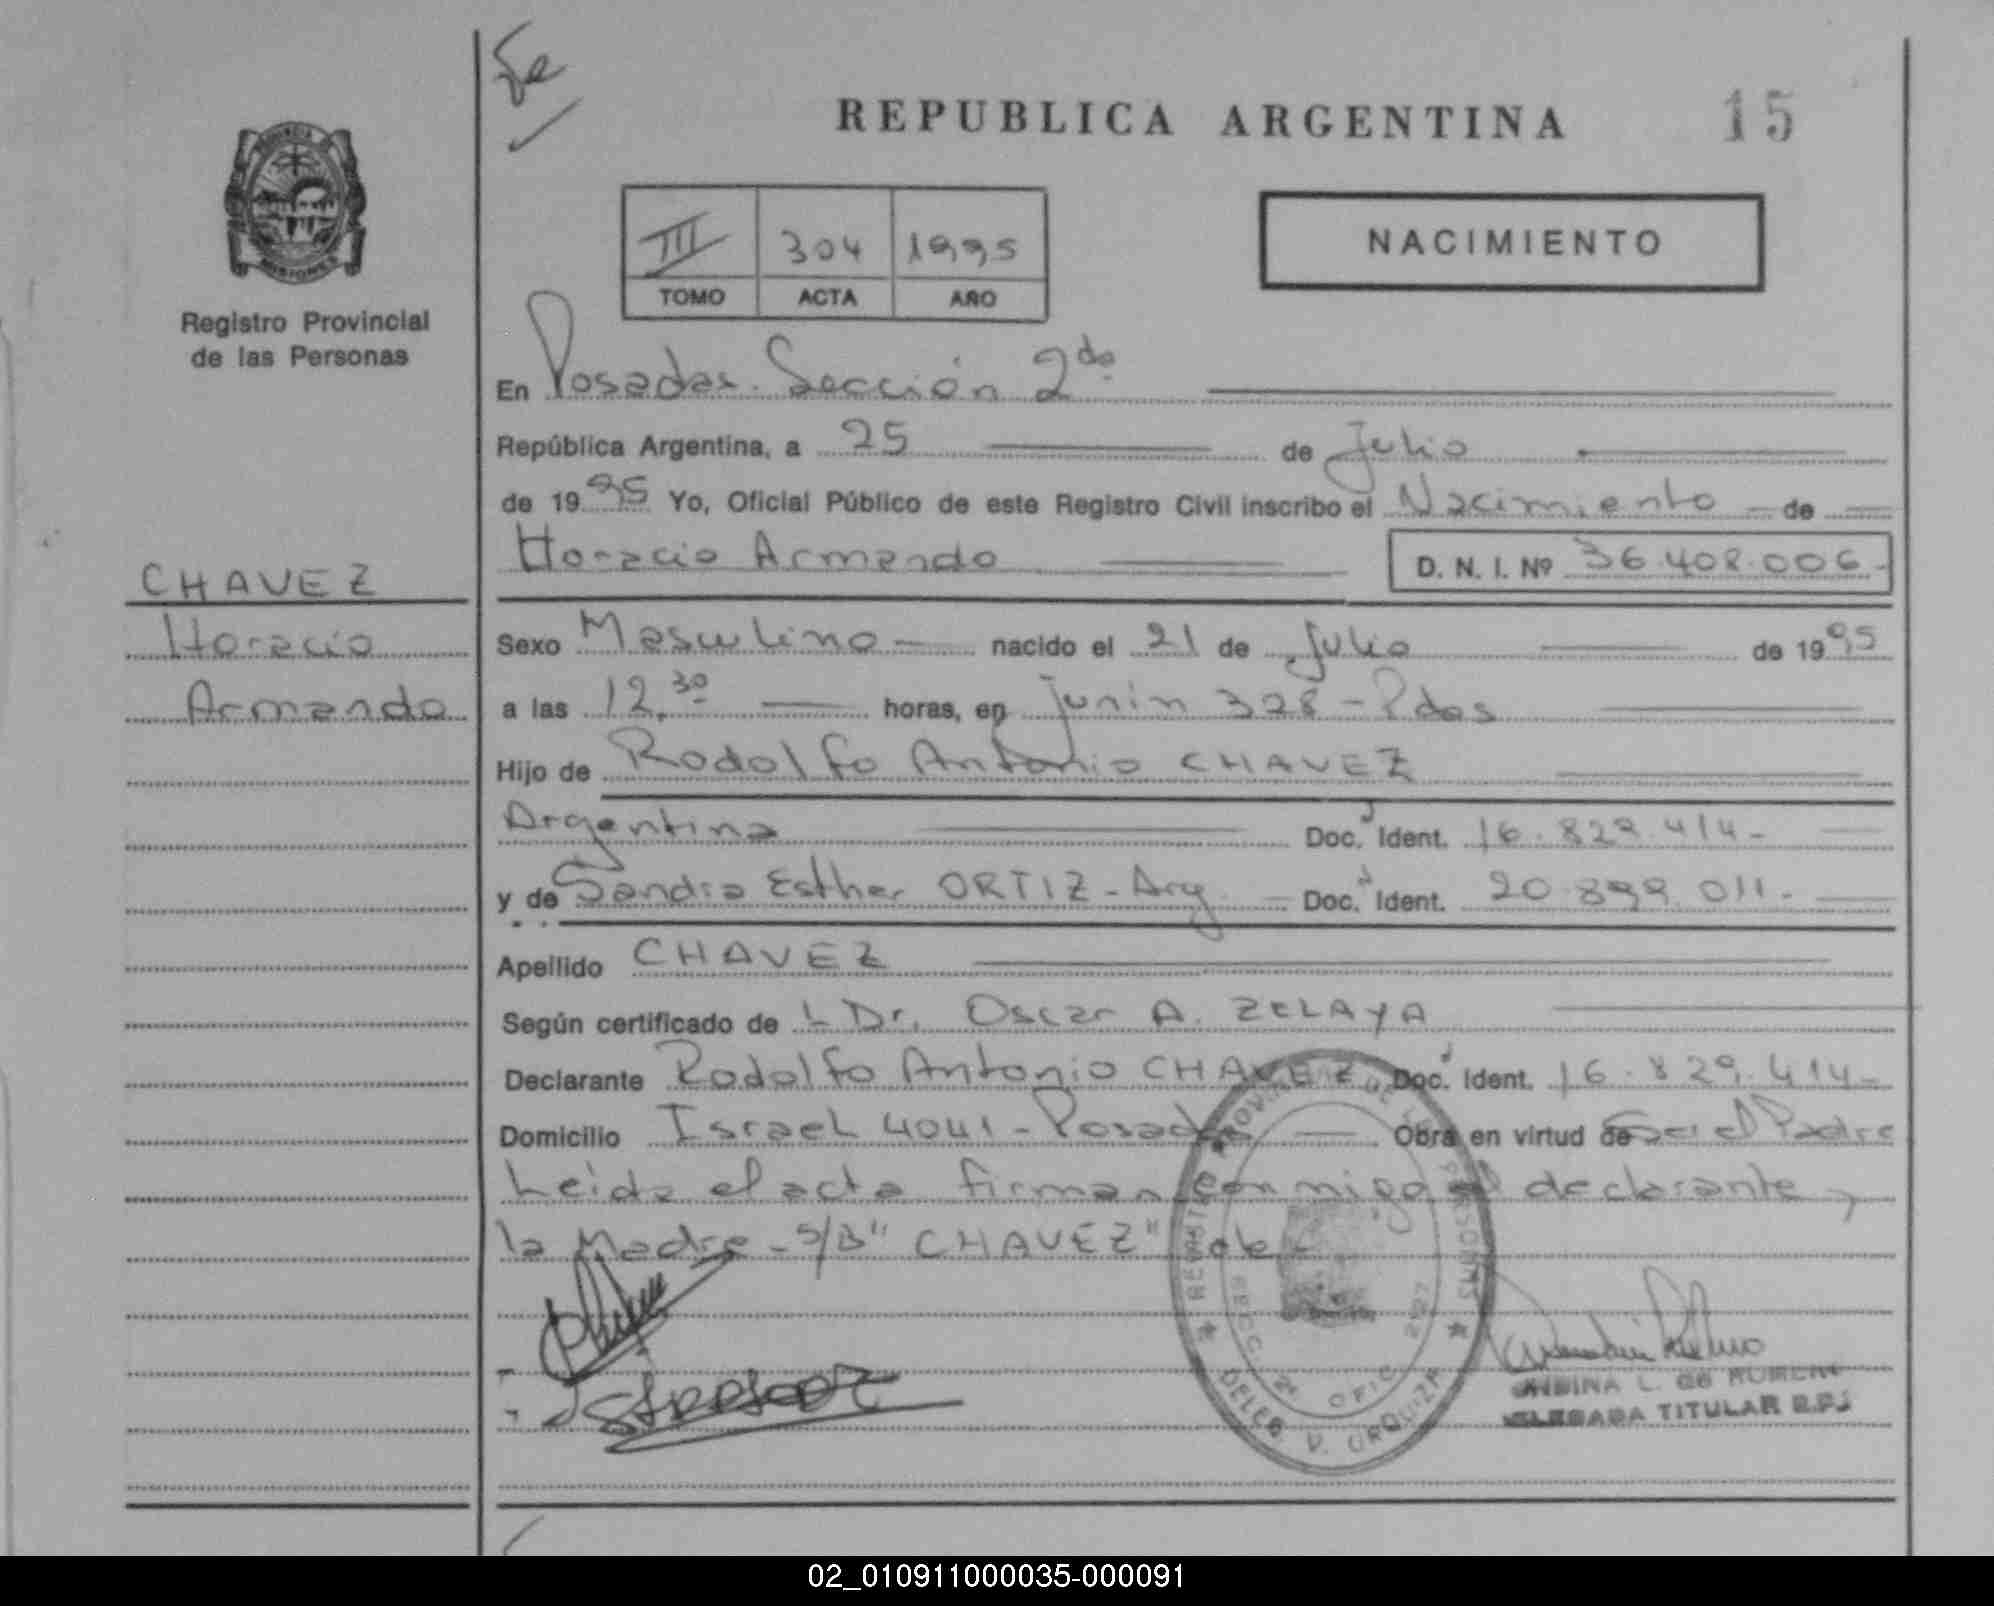 Se
REPUBLICA ARGENTINA
15
MISIONES
Registro Provincial
de las Personas
III 304 1995
TOMO ACTA AÑO
NACIMIENTO
En Posadas. Sección 2da
República Argentina, a 25 de Julio
de 1995 Yo, Oficial Público de este Registro Civil inscribo el Nacimiento de
Horacio Armando D. N. I. Nº 36.408.006-
CHAVEZ
Horacio
Armando
Sexo Masculino nacido el 21 de Julio de 1995
a las 12.30 horas, en Junin 328 - Pdas
Hijo de Rodolfo Antonio CHAVEZ
Argentina Doc. Ident. 16.829.414-
y de Sandra Esther ORTIZ - Arg. Doc. Ident. 20.899.011-
Apellido CHAVEZ
Según certificado de L Dr. Oscar A. ZELAYA
Declarante Rodolfo Antonio CHAVEZ Doc. Ident. 16.829.414-
Domicilio Israel 4041 - Posadas Obra en virtud de Ser el Padre
Leida el acta firman conmigo el declarante y
la Madre - S/B "CHAVEZ" vale
REGISTRO PROVINCIAL DE LAS PERSONAS
SECC. 2ª OFIC. 2127
DELEG. V. URQUIZA
TITULAR R.P.
02_010911000035-000091